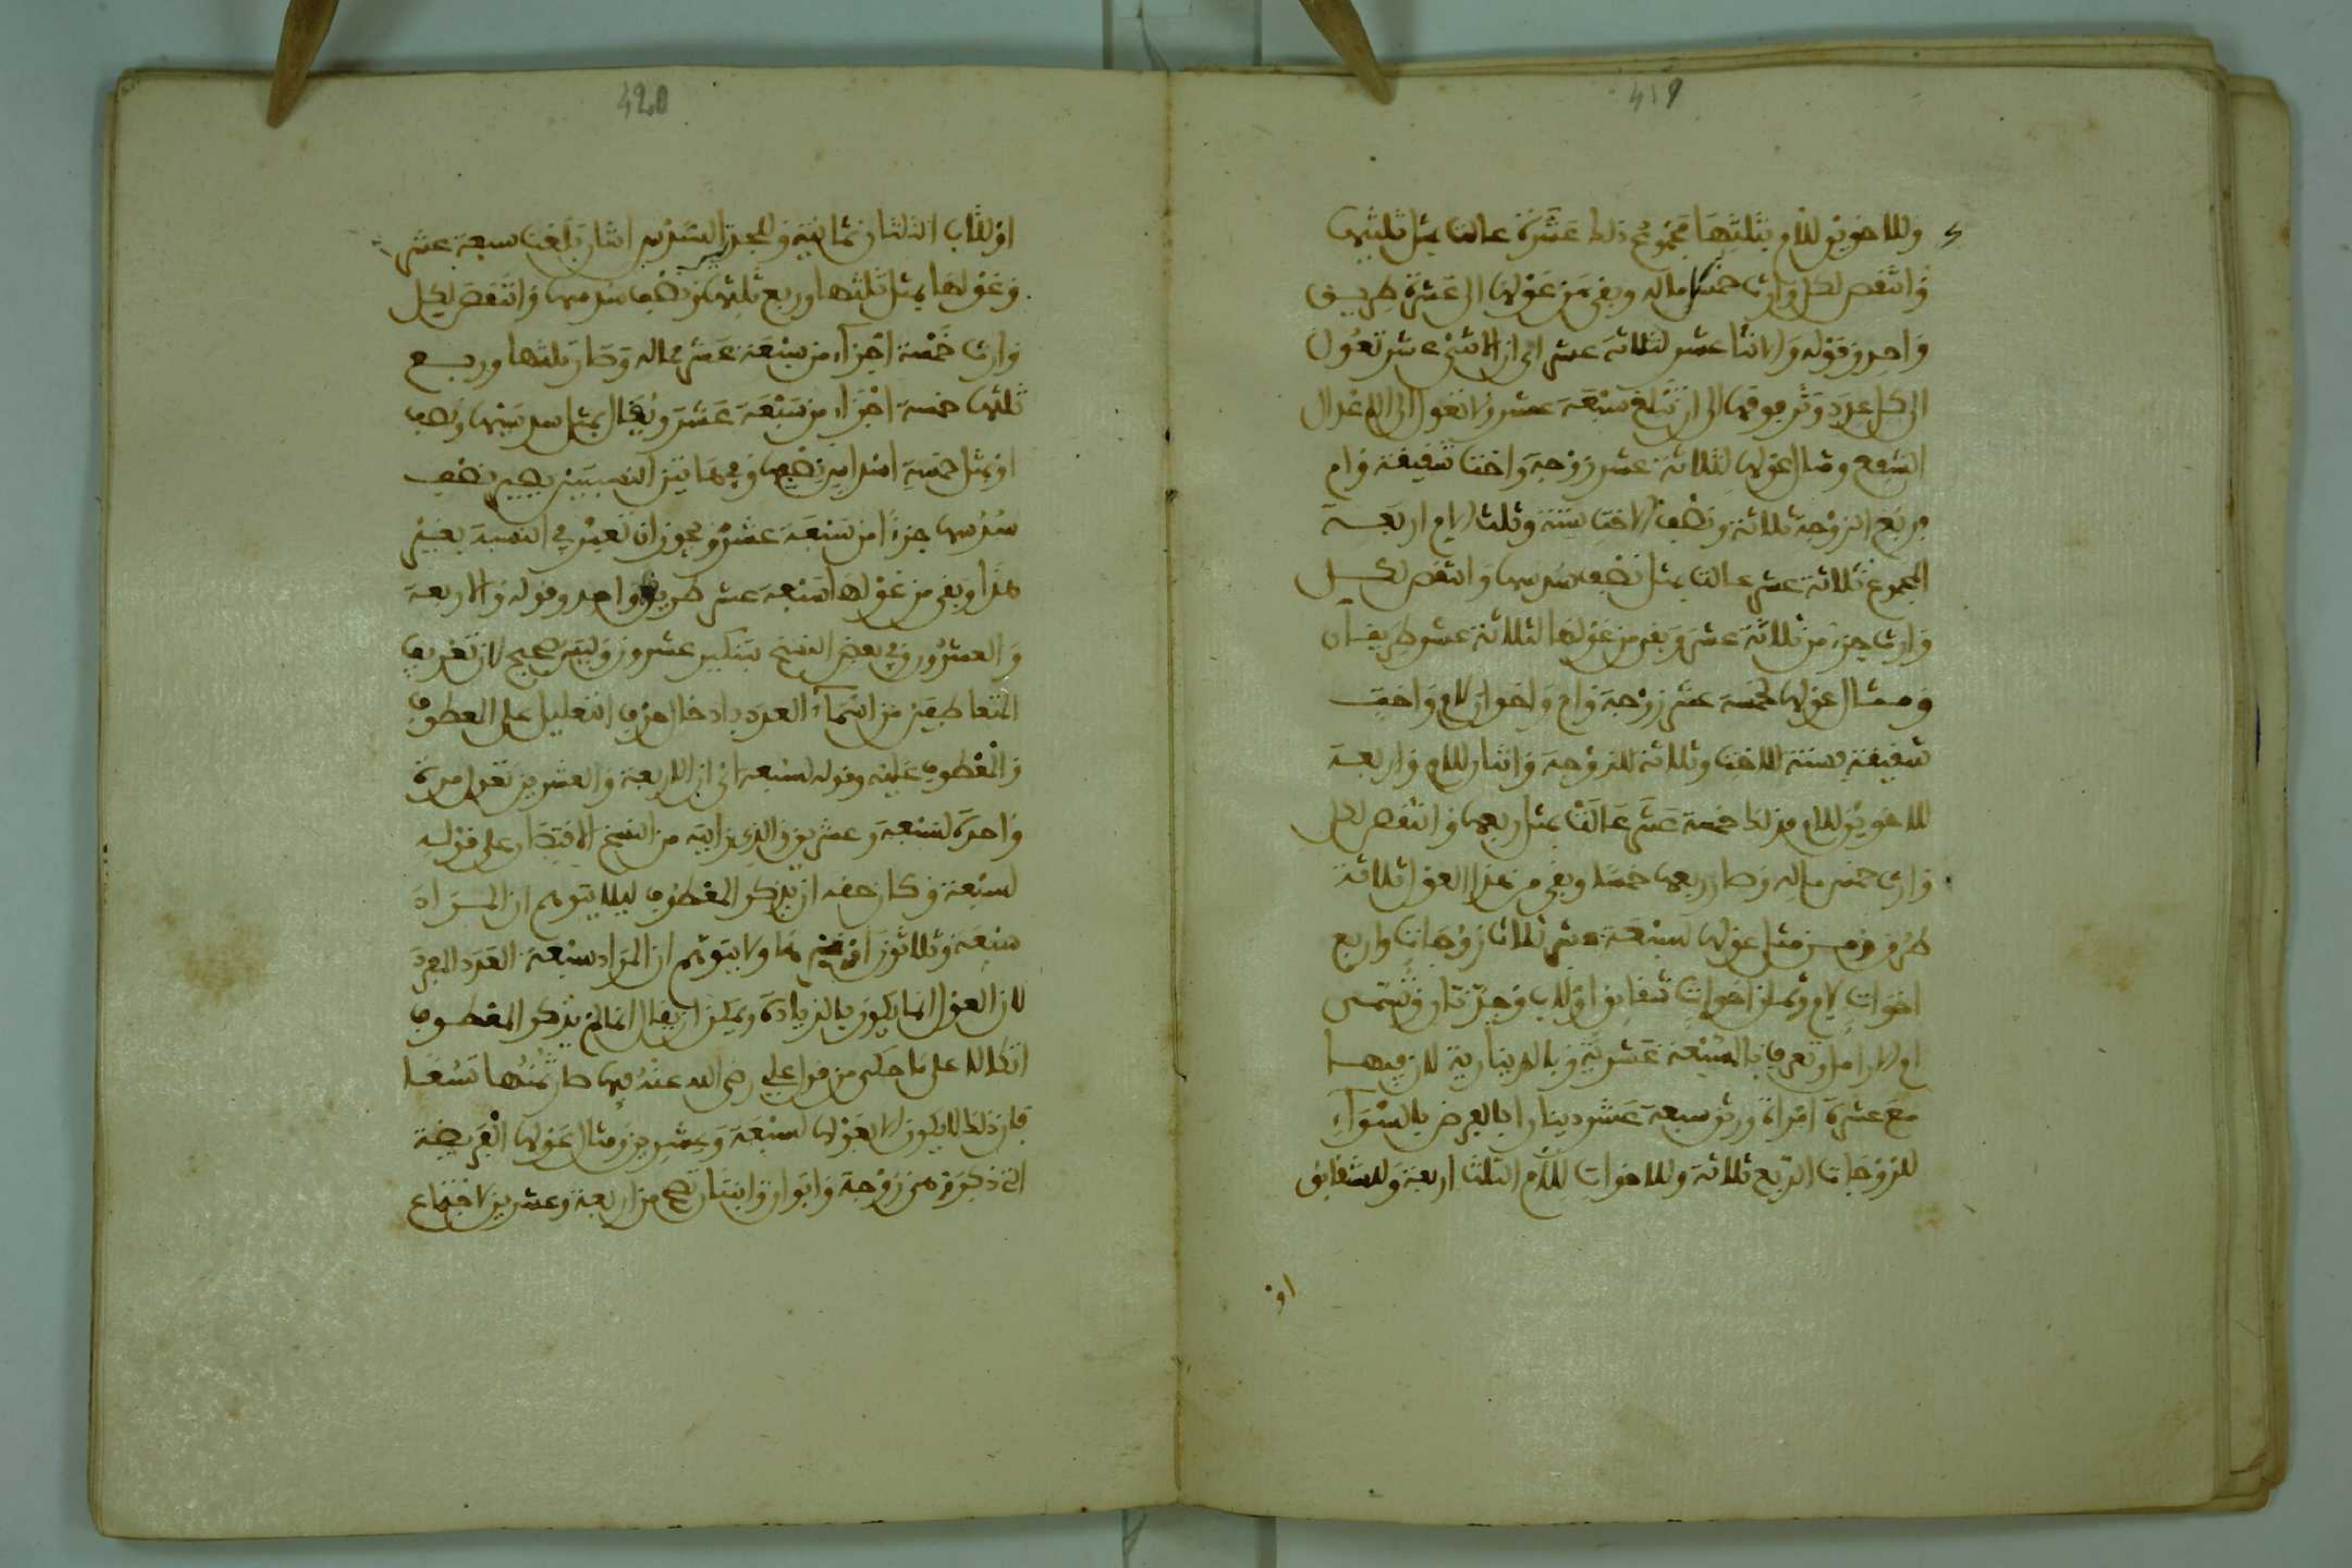 419
وللاخوين للام بثلثها مجموع ذلك عشرة عالت بمثل ثلثيها
وانتقص لكل وارث خمسا ماله وبقي من عولها الى عشرة طريق
واحد وقوله والاثنا عشر لثلاثة عشر اي ان الاثني عشر تعول
الى كل عدد وتر فوقها الى ان تبلغ سبعة عشر ولا تعول الى الاعداد
الشفع ومثال عولها لثلاثة عشر زوجة واخت شقيقة وام
فربع الزوجة ثلاثة ونصف الاخت ستة وثلث الام اربعة
المجموع ثلاثة عشر عالت بمثل نصف سدسها وانتقص لكل
وارث جزء من ثلاثة عشر وبقي من عولها لثلاثة عشر طريقان
ومثال عولها لخمسة عشر زوجة وام واخوان لام واخت
شقيقة فستة للاخت وثلاثة للزوجة واثنان للام واربعة
للاخوين للام فذلك خمسة عشر عالت بمثل ربعها وانتقص لكل
وارث خمس ماله وصار ربعها خمسا وبقي من هذا العول ثلاثة
طرق ومن مثل عولها لسبعة عشر ثلاث زوجات واربع
اخوات لام وثمان اخوات شقايق او لاب وجدتان وتسمى
ام الارامل وتعرف بالسبعة عشرية وبالدينارية لان فيها
سبع عشرة امراة ورثن سبعة عشر دينارا بالفرض بالسواء
للزوجات الربع ثلاثة وللاخوات للام الثلث اربعة وللشقايق
او
420
او للاب الثلثان ثمانية وللجدتين السدس اثنان بلغت سبعة عشر
وعولها بمثل ثلثها وربع ثلثها ونصف سدسها وانتقص لكل
وارث خمسة اجزاء من سبعة عشر مما له وصار ثلثها وربع
ثلثها خمسة اجزاء من سبعة عشر ويقال بمثل سدسيها ونصف
او بمثل خمسة اسداس نصفها وفيما بين النصيبين يصير نصف
سدسها جزءا من سبعة عشر ويجوز ان تعبر في النسبة بغير
هذا وبقي من عولها لسبعة عشر طريق واحد وقوله والاربعة
والعشرون وفي بعض النسخ بتنكير عشرون وليس بصحيح لان تعريف
المتعاطفين من اسماء العدد بادخال حرف التعليل على المعطوف
والمعطوف عليه وقوله لسبعة اي ان الاربعة والعشرين تعول مرة
واحدة لسبعة وعشرين والذي رايته من النسخ الاقتصار على قوله
لسبعة وكان حقه ان يذكر المعطوف ليلا يتوهم ان المراد
سبعة وثلاثون او غيرها ولا يتوهم ان المراد سبعة العدد المفرد
لان العول انما يكون بالزيادة ويمكن ان يقال انما لم يذكر المعطوف
اتكالا على ما حكى من قول علي رضي الله عنه فيها صار ثمنها تسعا
فان ذلك لا يكون الا بعولها لسبعة وعشرين ومثال عولها الفريضة
التي ذكر وهي زوجة وابوان وابنتان تصح من اربعة وعشرين لاجتماع